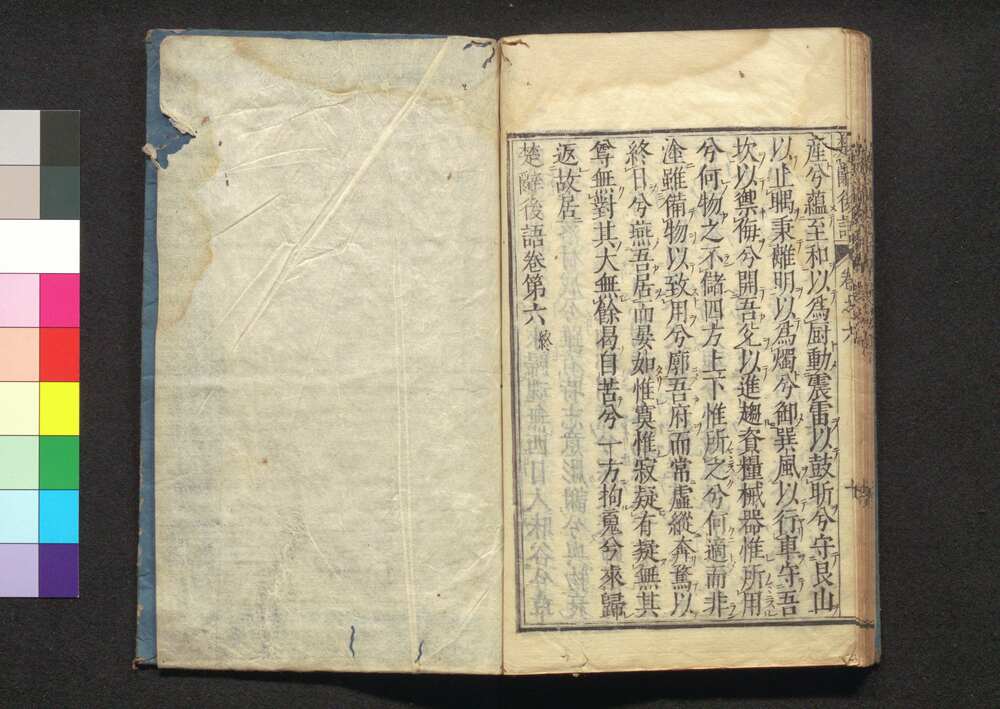 楚辭後語 卷之六
産兮蘊至和以為厨動震雷以鼓昕兮守艮山
以止隅秉離明以為燭兮御巽風以行車守吾
坎以禦侮兮開吾兊以進趨資糧械器惟所用
兮何物之不儲四方上下惟所之兮何適而非
塗雖備物以致用兮廓吾府而常虛縱奔騖以
終日兮燕吾居而晏如惟寞惟寂疑有擬無其
尊無對其大無餘曷自苦兮一方拘䰟兮來歸
返故居
楚辭後語卷第六終